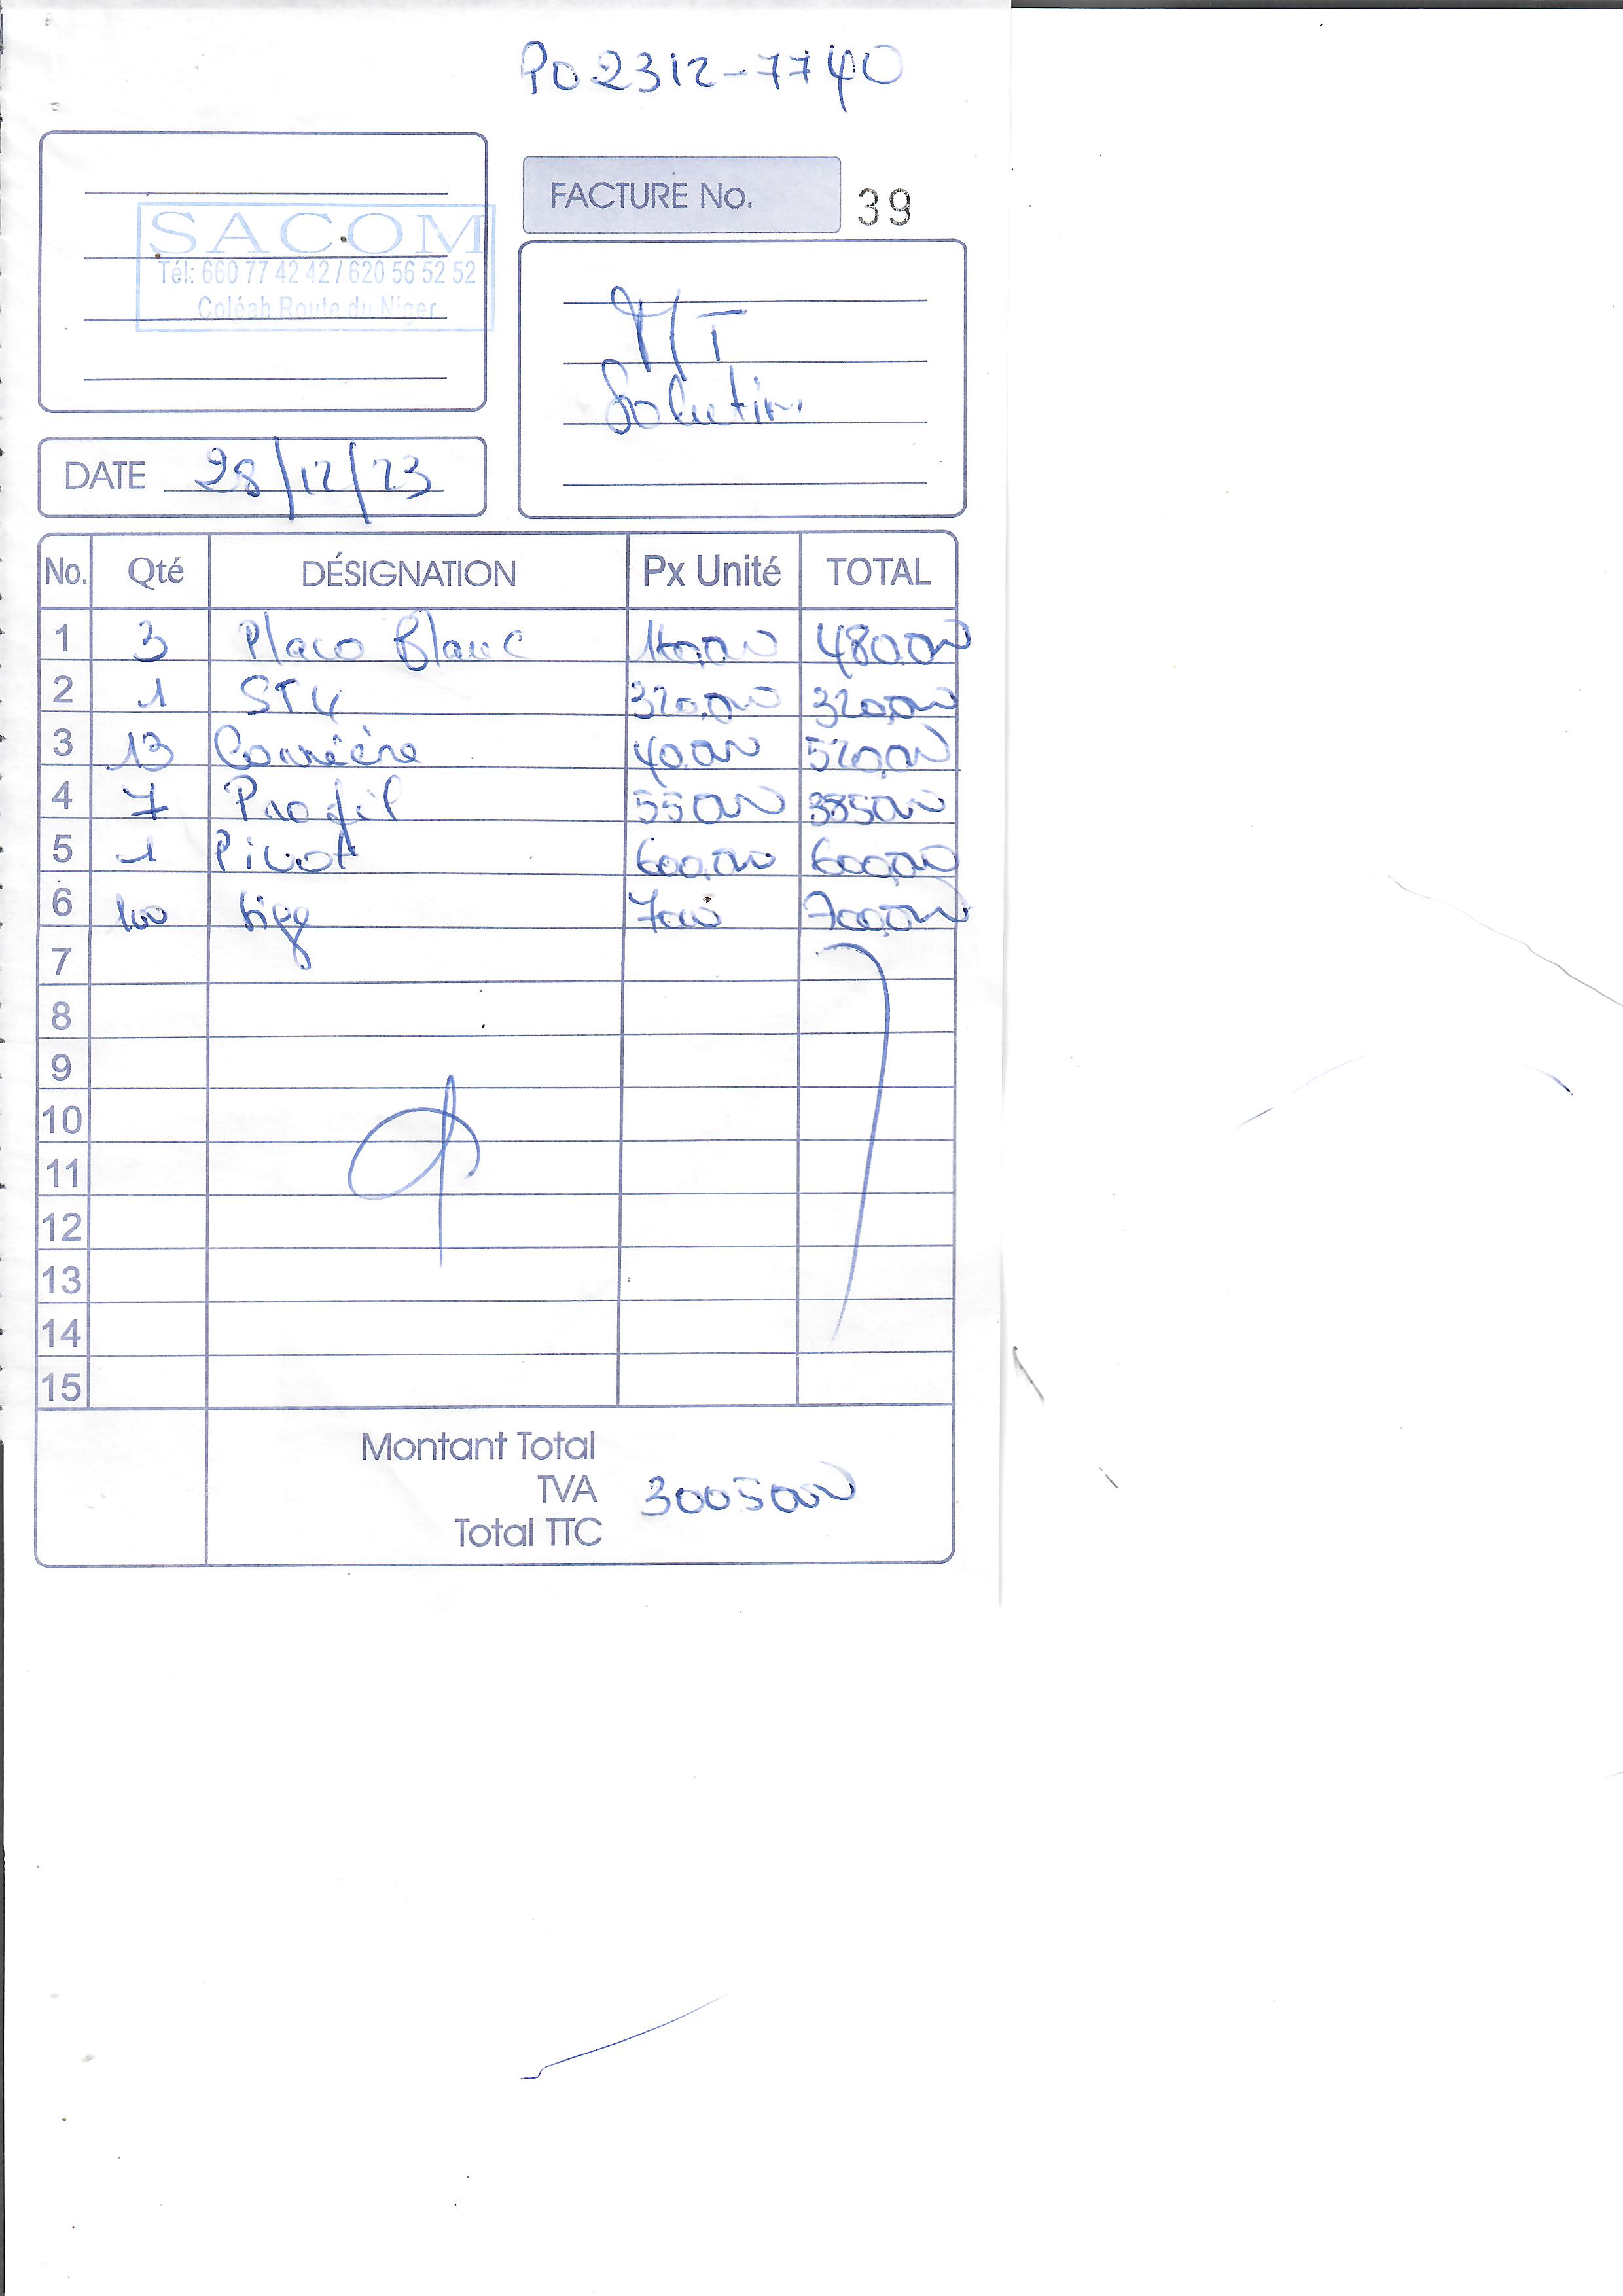 PO2312-7740
FACTURE No. 39
SACOM
Tél: 660 77 42 42 / 620 56 52 52
Coléah Route du Niger
M/T
Solution
DATE 28/12/23
No. Qté DÉSIGNATION Px Unité TOTAL
1 3 Placo Blanc 160.000 480.000
2 1 ST4 320.000 320.000
3 13 40.000 520.000
4 7 Profil 55000 385000
5 1 Pivot 600.000 600.000
6 100 7000 700.000
7
8
9
10
11
12
13
14
15
Montant Total
TVA 3005000
Total TTC